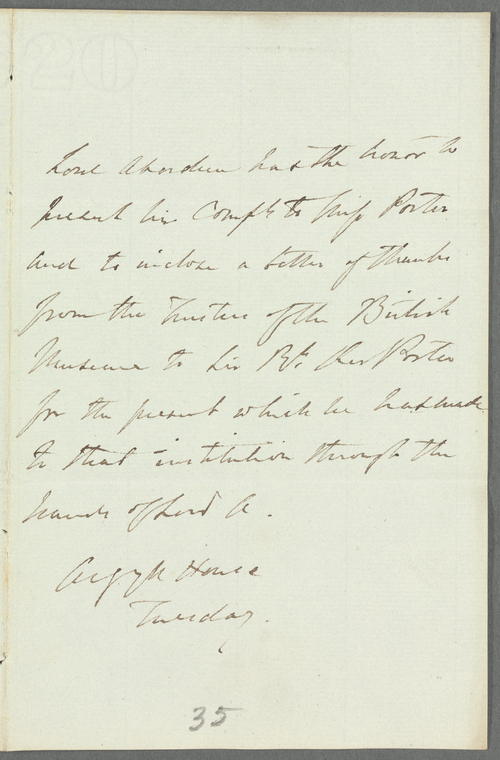 Lord Aberdeen has the honor to
present his Compts to Miss Porter
and to inclose a letter of thanks
from the Trustees of the British
Museum to Sir Rt. Ker Porter
for the present which he has made
to that institution through the
hands of Lord A.
Argyll House
Tuesday.
35